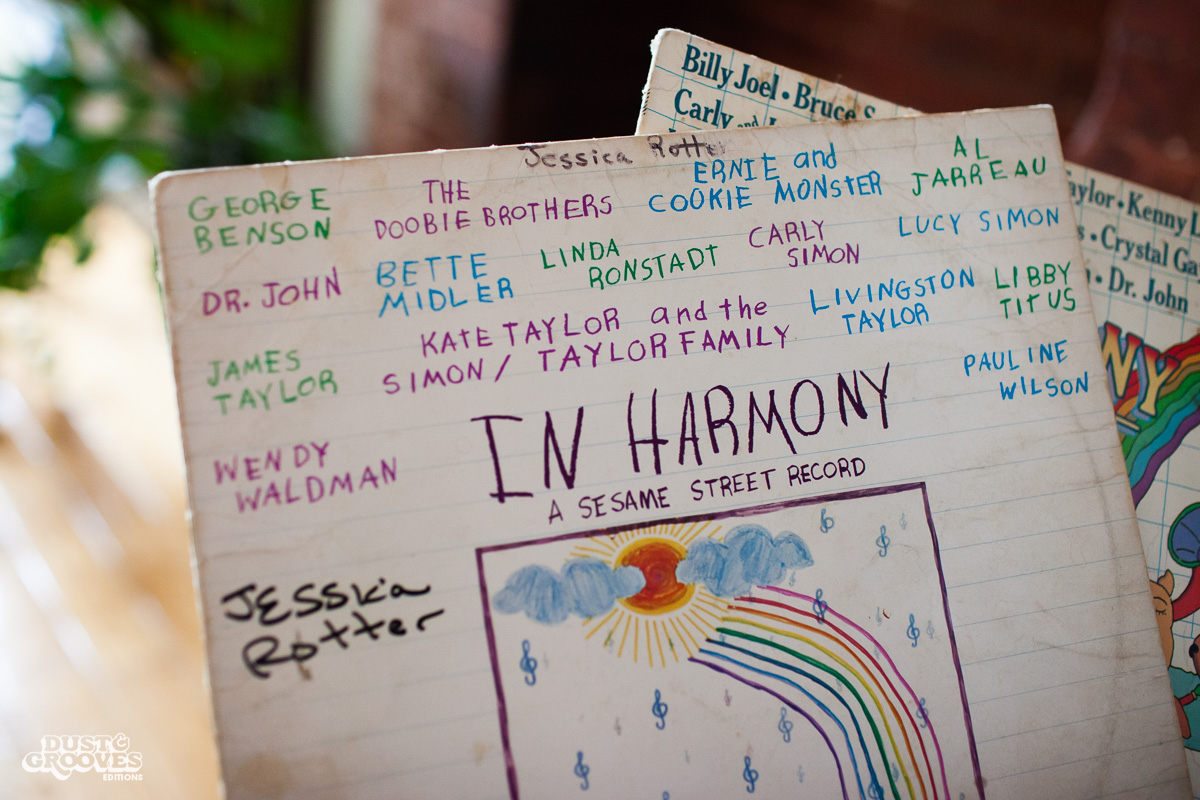 Billy Joel • Bruce
Carly and
Jessica Rotter
GEORGE
BENSON
THE
DOOBIE BROTHERS
ERNIE and
COOKIE MONSTER
AL
JARREAU
DR. JOHN
BETTE
MIDLER
LINDA
RONSTADT
CARLY
SIMON
LUCY SIMON
JAMES
TAYLOR
KATE TAYLOR and the
SIMON / TAYLOR FAMILY
LIVINGSTON
TAYLOR
LIBBY
TITUS
PAULINE
WILSON
WENDY
WALDMAN
IN HARMONY
A SESAME STREET RECORD
JESSicA
Rotter
aylor • Kenny L
s • Crystal Ga
• Dr. John
NY
DUST &
GROOVES
EDITIONS